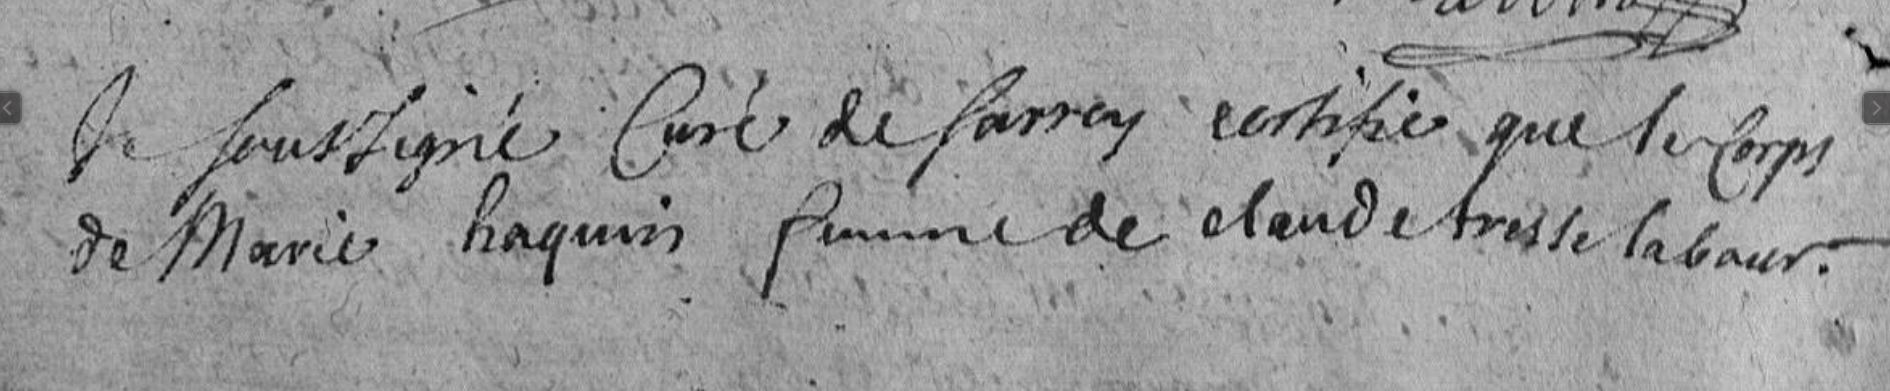 Je soussigné Curé de sarrey certifie que le Corps
de Marie haquin femme de claude tresse labour.